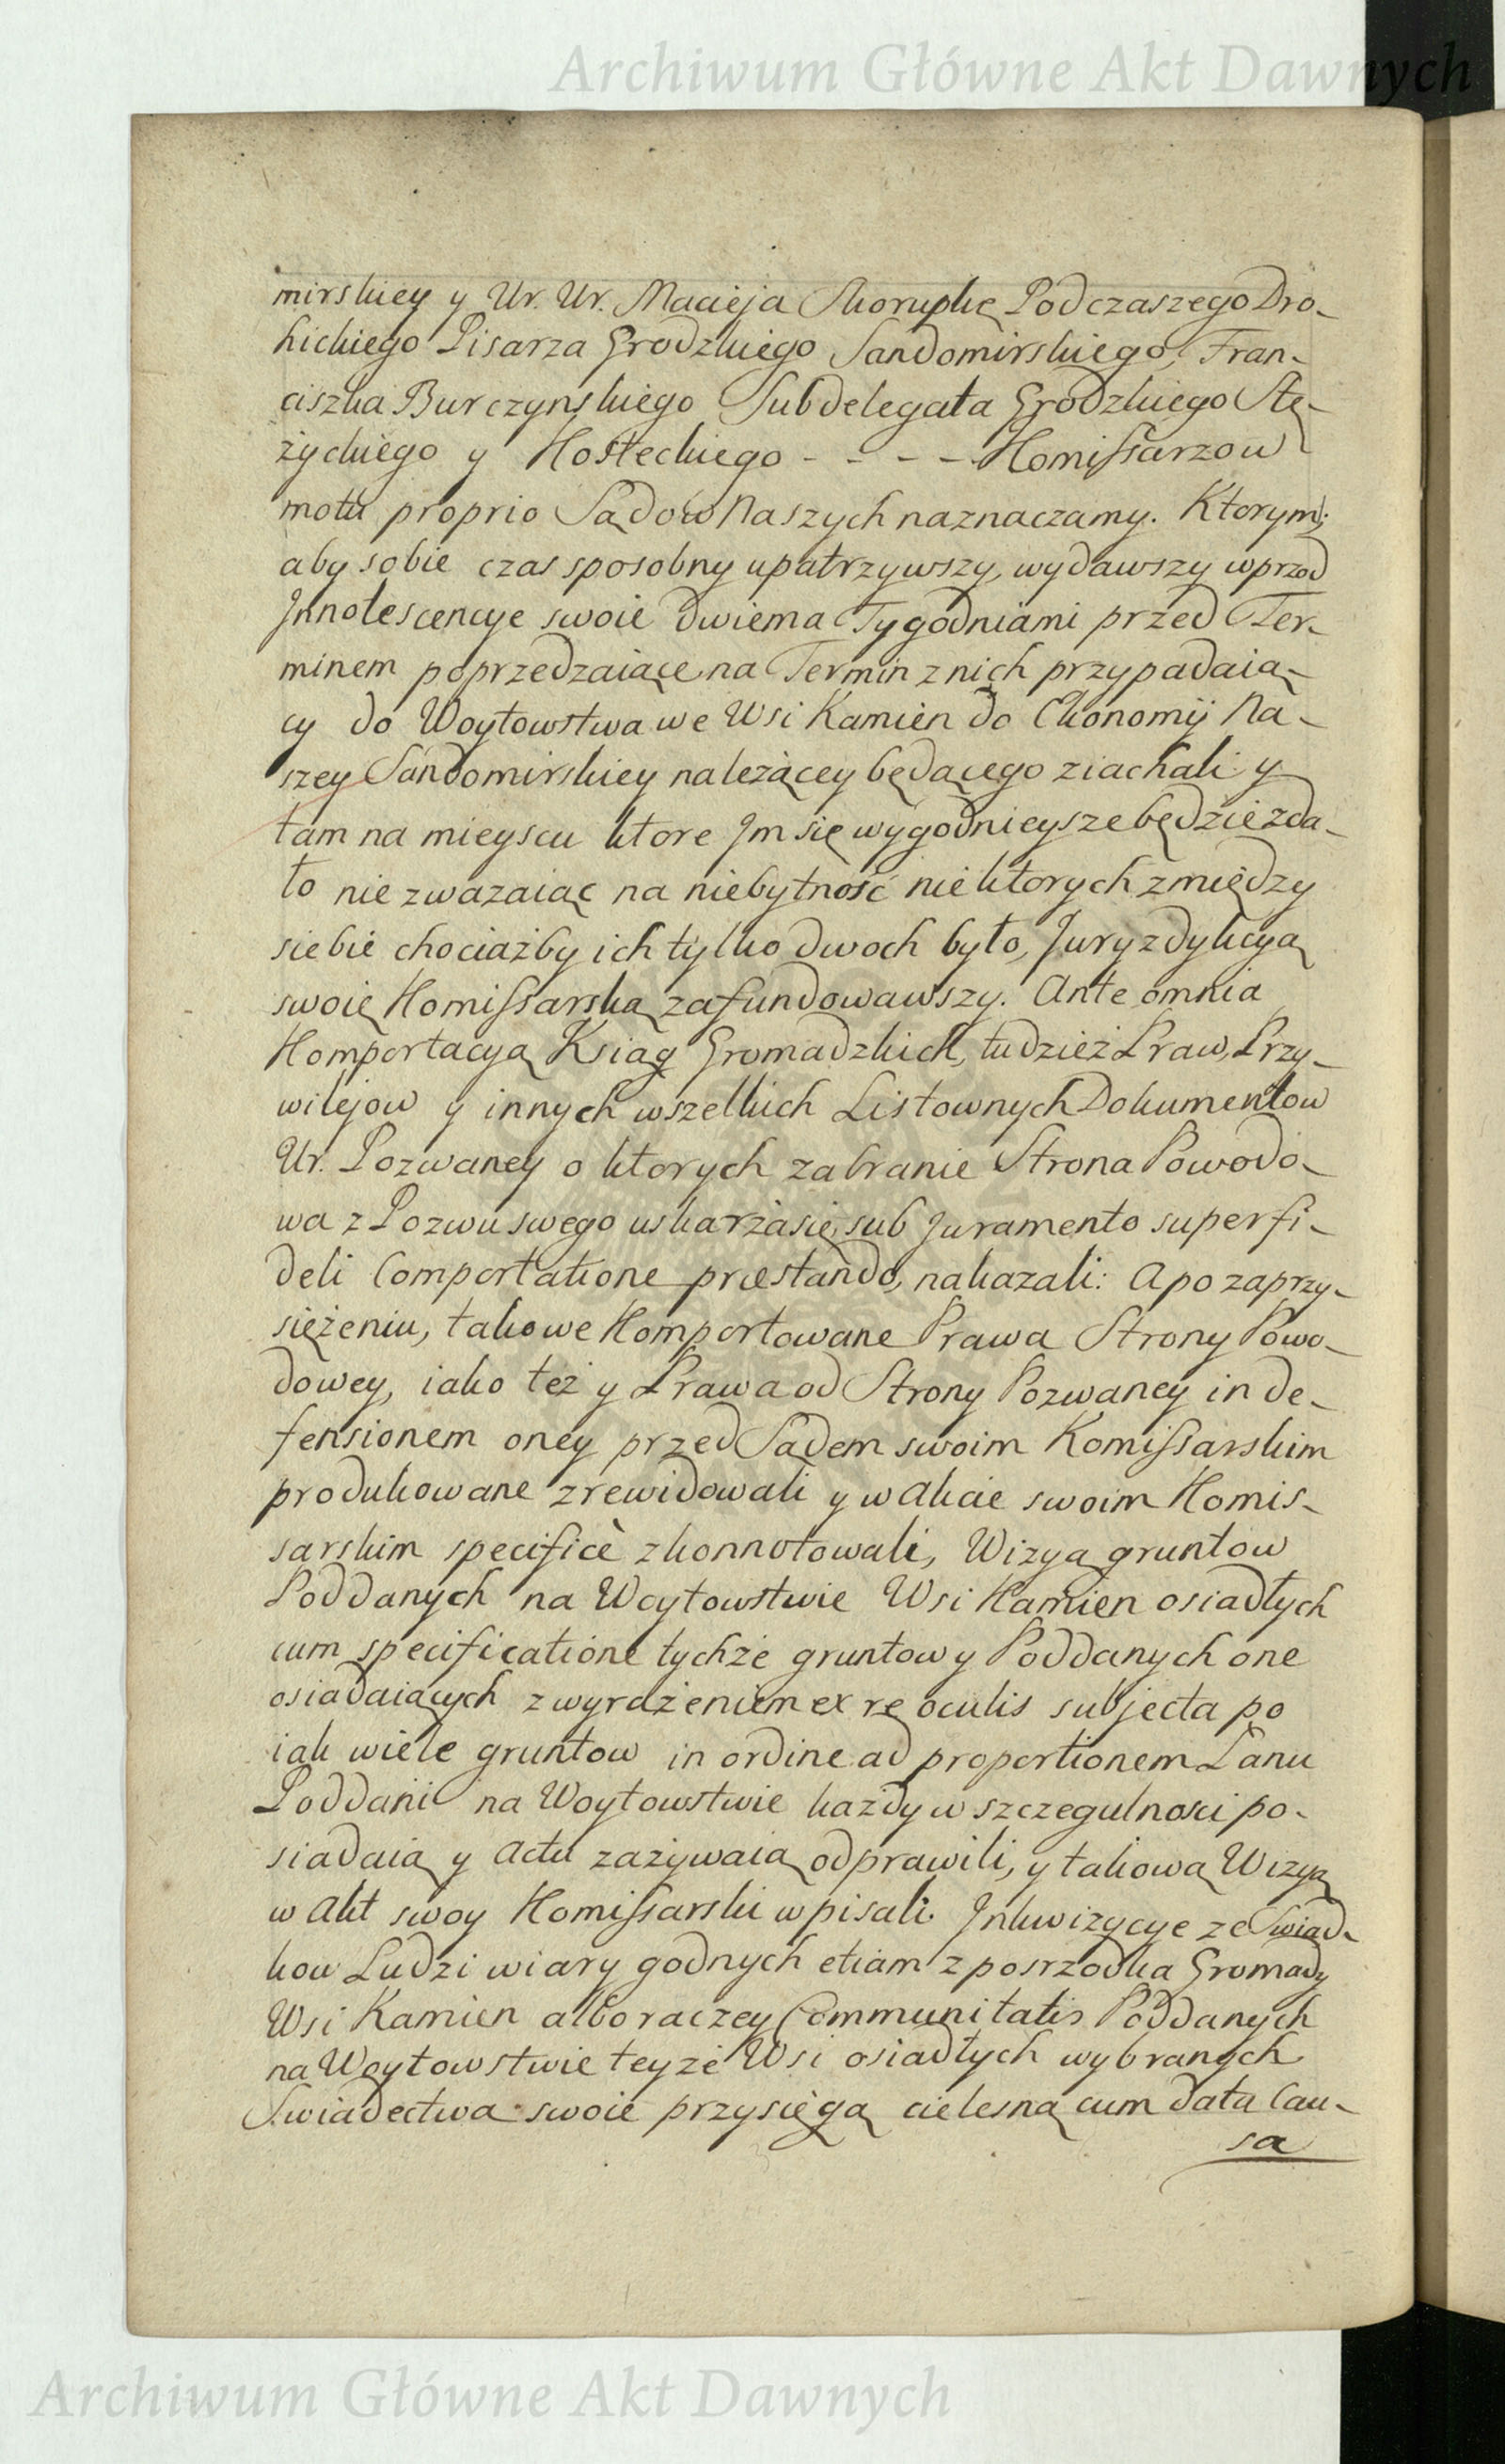 Archiwum Główne Akt Dawnych
mirskiey y Ur. Ur. Macieja Skorupkę Podczaszego Dro-
hickiego Pisarza Grodzkiego Sandomirskiego, Fran-
ciszka Burczynskiego Subdelegata Grodzkiego Stę-
życkiego y Kosteckiego - - - - Komissarzow
motu proprio Sądow Naszych naznaczamy. Ktorym;
aby sobie czas sposobny upatrzywszy, wydawszy wprzod
Jnnotescencye swoie dwiema Tygodniami przed Ter-
minem poprzedzaiące na Termin z nich przypadaią-
cy do Woytowstwa we Wsi Kamien do Ekonomij Na-
szey Sandomirskiey należącey będącego ziachali y
tam na mieyscu ktore Jm się wygodnieysze będzie zda-
ło nie zwazaiąc na niebytność niektorych z między
siebie chociażby ich tylko dwoch było, Juryzdykcyą
swoię Komissarską zafundowawszy. Ante omnia
Komportacyą Ksiąg Gromadzkich, tudzież Praw, Przy-
wilejow y innych wszelkich Listownych Dokumentow
Ur. Pozwaney o ktorych zabranie Strona Powodo-
wa z Pozwu swego uskarża się, sub Juramento super fi-
deli Comportatione præstando, nakazali: A po zaprzy-
siężeniu, takowe Komportowane Prawa Strony Powo-
dowey, iako też y Prawa od Strony Pozwaney in de-
fensionem oney przed Sądem swoim Komissarskim
produkowane zrewidowali y w Akcie swoim Komis-
sarskim specificè zkonnotowali, Wizyą gruntow
Poddanych na Woytowstwie Wsi Kamien osiadłych
cum specificatione tychże gruntow y Poddanych one
osiadaiących z wyrażeniem ex re oculis subjecta po
iak wiele gruntow in ordine ad proportionem Łanu
Poddani na Woytowstwie każdy w szczegulnosci po-
siadaią y actu zażywaią odprawili, y takową Wizyą
w Akt swoy Komissarski wpisali. Jnkwizycye ze Swiad-
kow Ludzi wiary godnych etiam z posrzodka Gromady
Wsi Kamien albo raczey Communitatis Poddanych
na Woytowstwie teyże Wsi osiadłych wybranych
Swiadectwa swoie przysięgą cielesną cum data Cau-
sa
Archiwum Główne Akt Dawnych